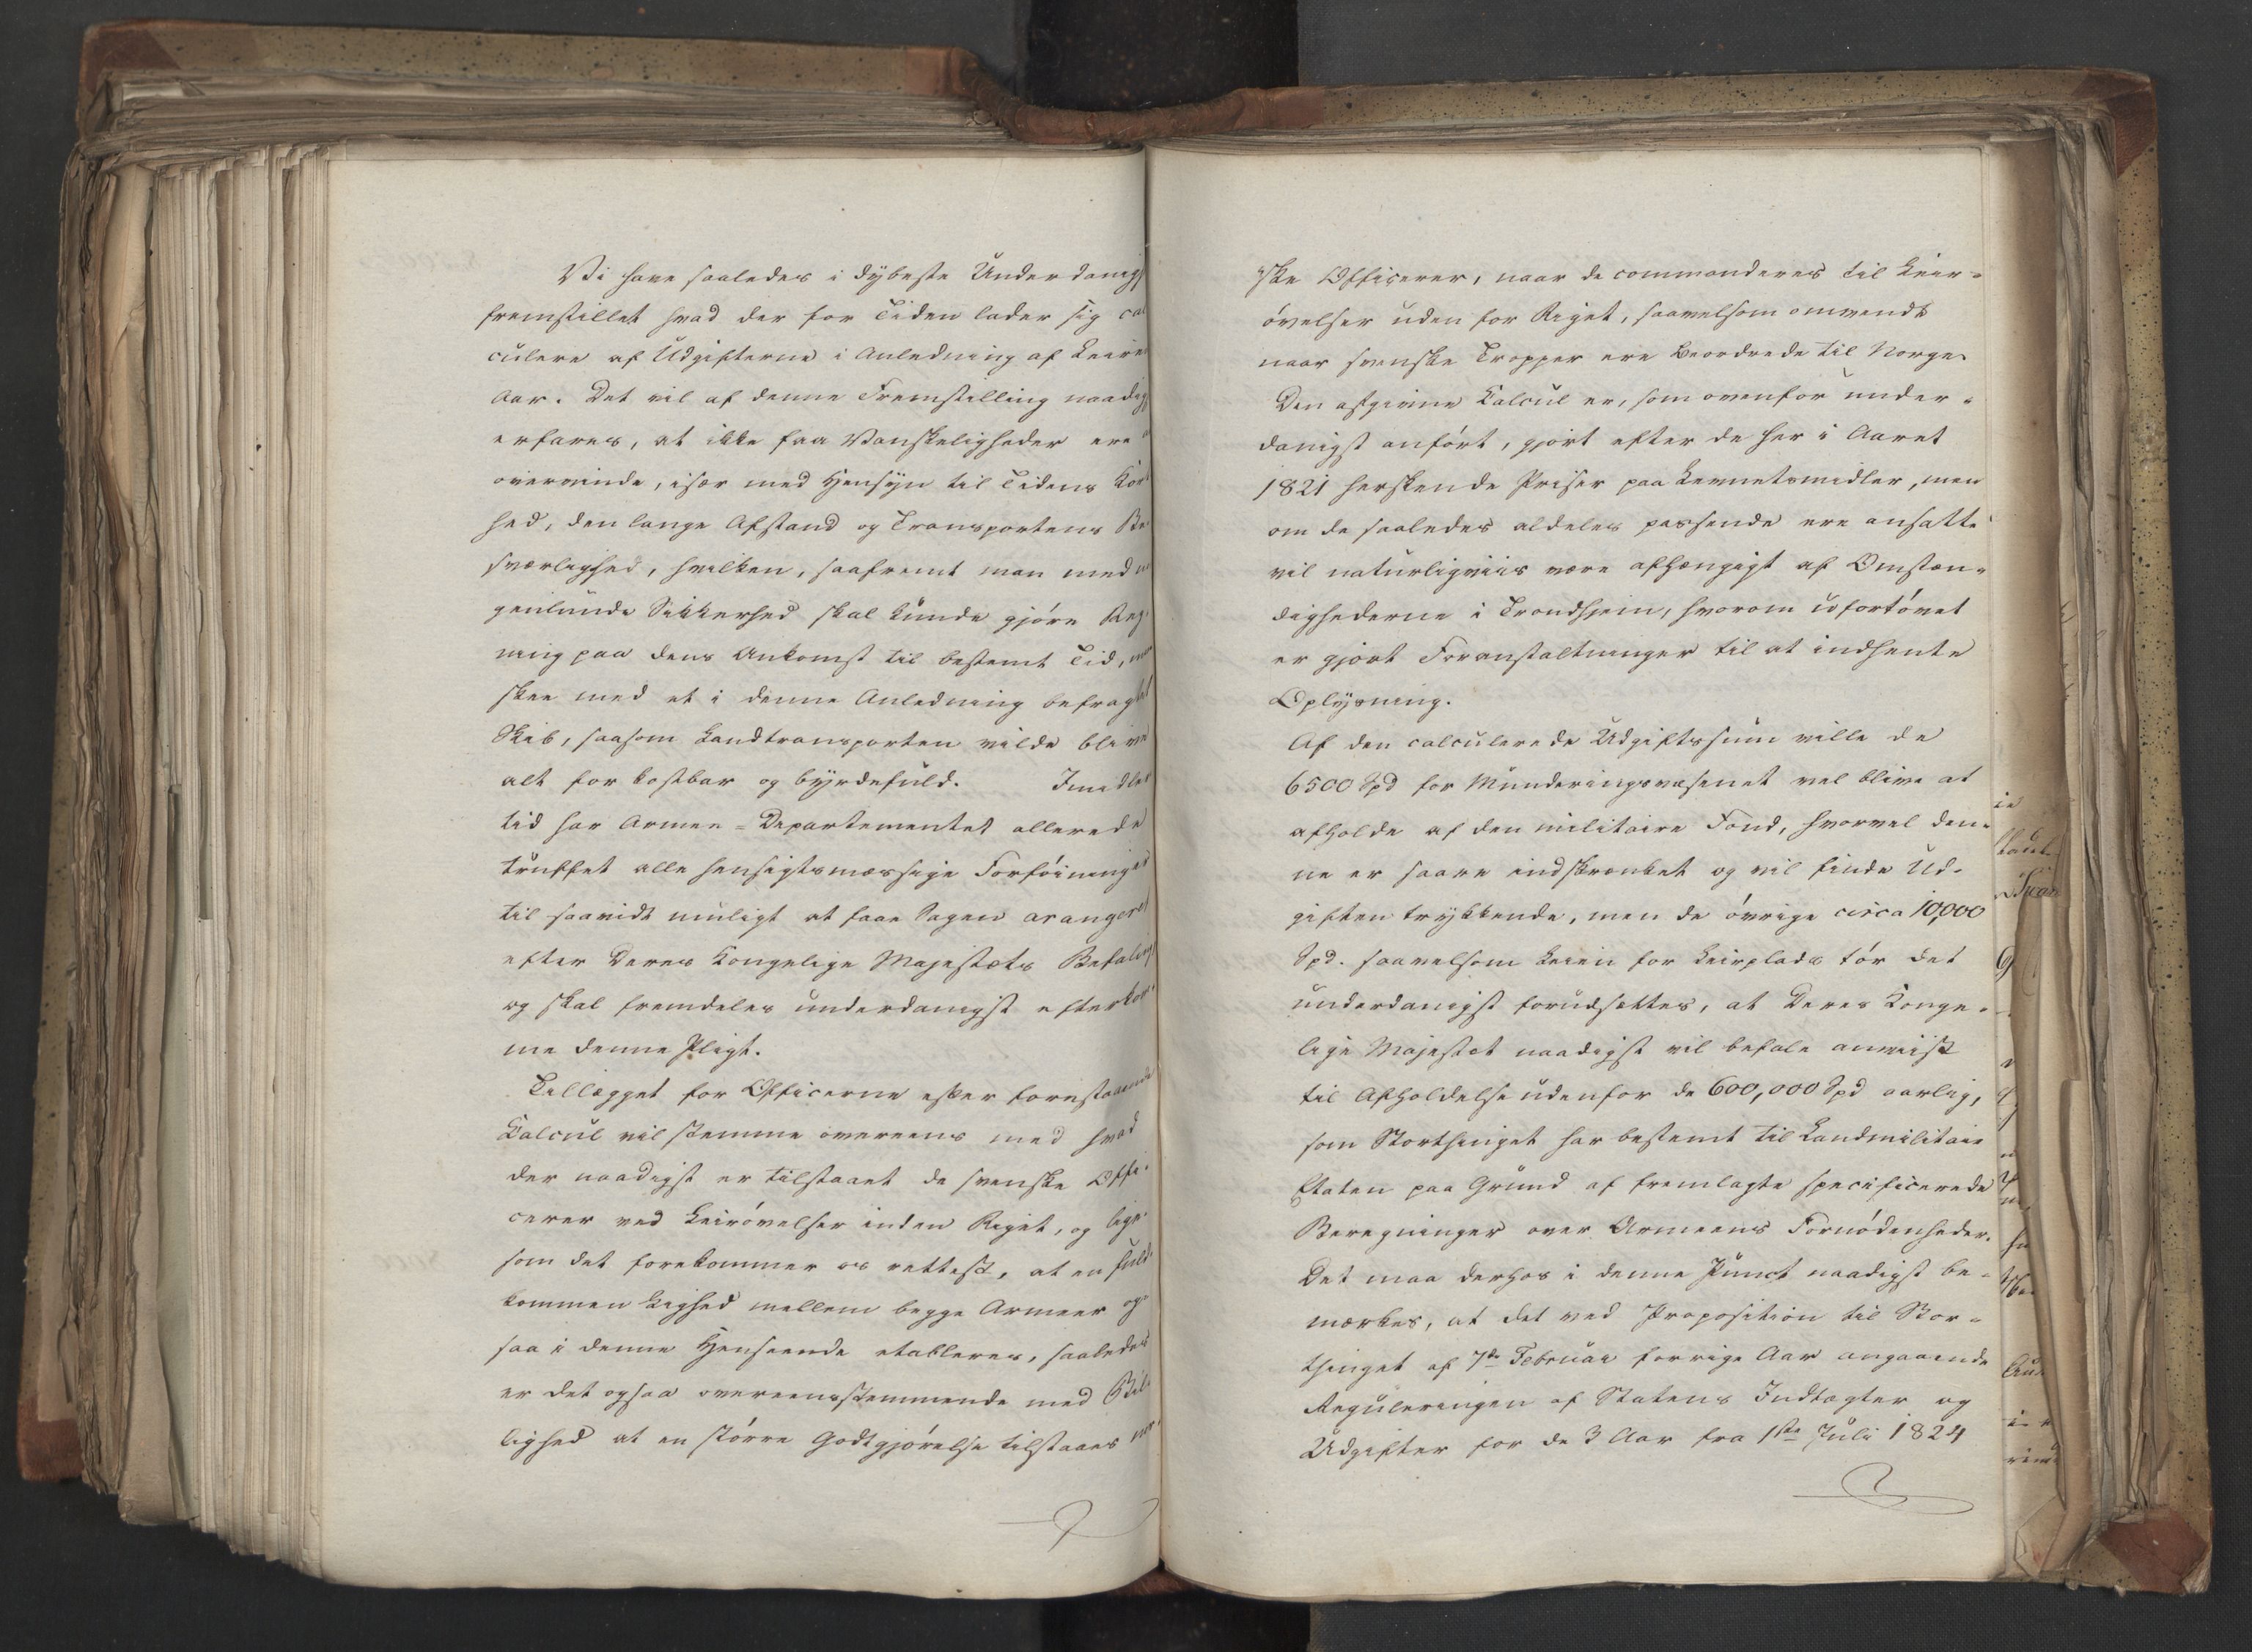 Vi have saaledes i dybeste Underdanigs
fremstillet hvad der for Tiden lader sig cal
culere af Udgifterne i Anledning af Leiren
Aar. Det vil af denne Fremstilling naadigst
erfares, at ikke faa Vanskeligheder ere a
overvinde, især med Hensyn til Tidens Kort
hed, den lange Afstand og Transportens Be
sværlighed, hvilken, saafremt man med no
genlunde Sikkerhed skal kunde gjöre Reg-
ning paa dens Ankomst til bestemt Tid, maa
skee med et i denne Anledning befragtet
Skib, saasom Landtransporten vilde blive
alt for kostbar og byrdefuld. Imidler
tid har Armee-Departementet allerede
truffet alle hensigtsmæssige Forföininger
til saavidt muligt at faae Sagen arangeret
efter Deres Kongelige Majestæts Befaling
og skal fremdeles underdanigst efterkom-
me denne Pligt.
Tillægget for Officerne efter forestaaende
Calcul vil stemme overeens med hvad
der naadigst er tilstaaet de svenske Offi-
cerer ved Leirövelser inden Riget, og lige-
som det forekommer os rettest, at en fuld-
kommen Lighed mellem begge Armeer og-
saa i denne Henseende etableres, saaledes
er det ogsaa overeensstemmende med Bil-
lighed at en större Godtgjörelse tilstaaes nor-
ske Officerer, naar de commanderes til Leir-
övelser uden for Riget, saavelsom omvendt
naar svenske Tropper ere beordrede til Norge.
Den afgivne Calcul er, som ovenfor under-
danigst anfört, gjort efter de her i Aaret
1821 herskende Priser paa Levnetsmidler, men
om de saaledes aldeles passende ere ansatte
vil naturligviis være afhængigt af Omstæn-
dighederne i Trondhjem, hvorom ufortövet
er gjort Foranstaltninger til at indhente
Oplysning.
Af den calculerede Udgiftssum ville de
6500 Spd for Munderingsvæsenet vel blive at
afholde af den militaire Fond, hvorvel den-
ne er saare indskrænket og vil finde Ud-
giften trykkende, men de övrige circa 10,000
Spd. saavelsom Leien for Leirplads tör det
underdanigst forudsættes, at Deres Konge-
lige Majestæt naadigst vil befale anviist
til Afholdelse udenfor de 600,000 Spd aarlig,
som Storthinget har bestemt til Landmilitair
Etaten paa Grund af fremlagte specificerede
Beregninger over Armeens Fornödenheder.
Det maa derhos i denne Punct naadigst be-
mærkes, at det ved Proposition til Stor-
thinget af 7de Februar forrige Aar angaaende
Reguleringen af Statens Indtægter og
Udgifter for de 3 Aar fra 1ste Juli 1824